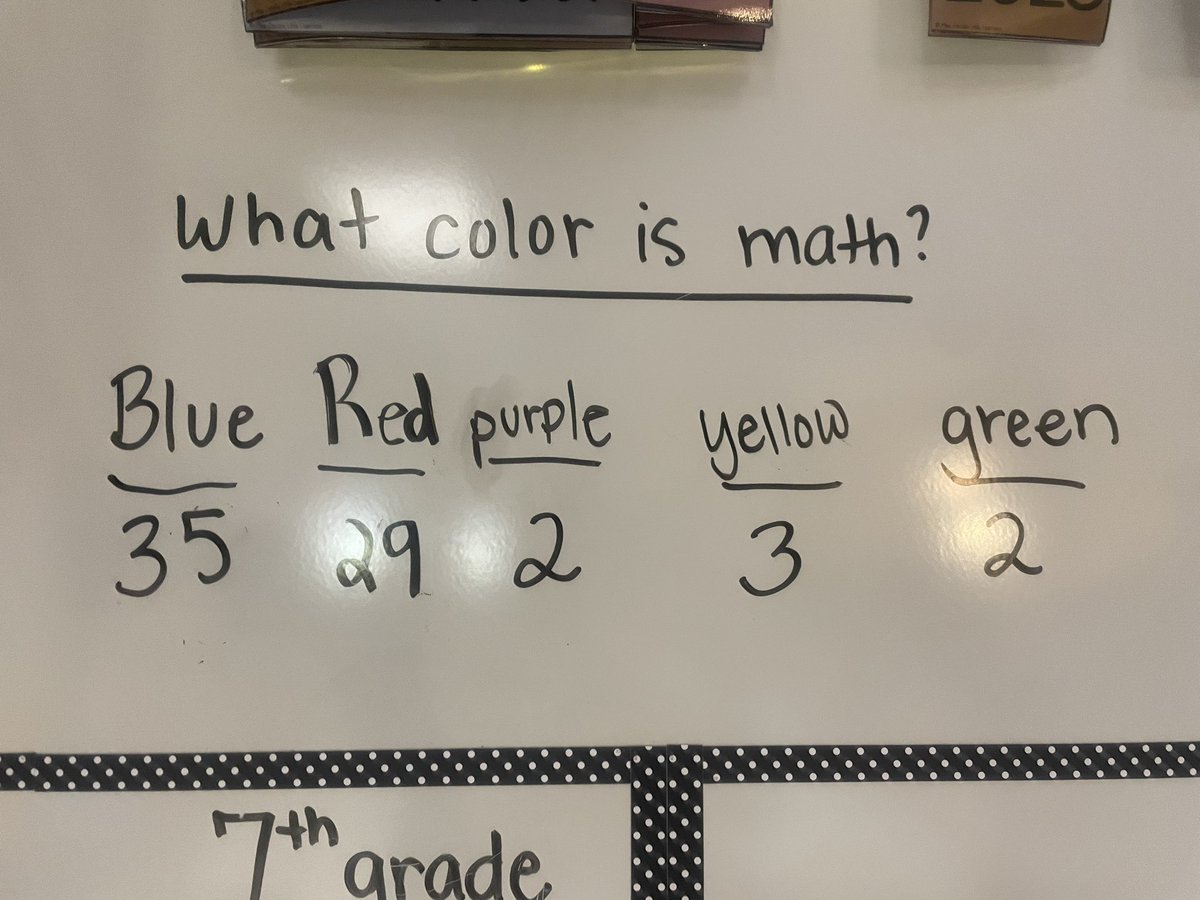 What color is math?
Blue Red purple yellow green
35 29 2 3 2
7th grade